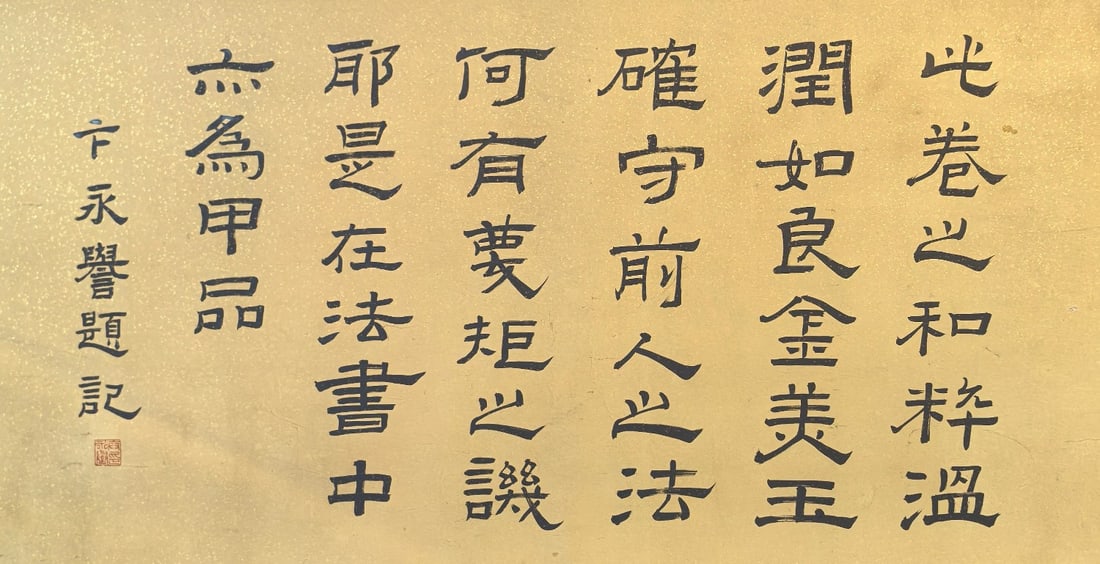 此卷之和粹溫
潤如良金美玉
確守前人之法
何有蔑矩之譏
耶是在法書中
亦為甲品
卞永譽題記